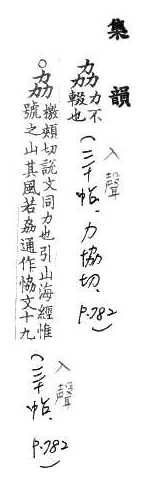 集韻
劦力不
劦輟也
(入聲 三十帖.力協切.P.782)
○劦檄頰切說文同力也引山海經惟
號之山其風若劦通作恊文十九
(入聲 三十帖. P.782)